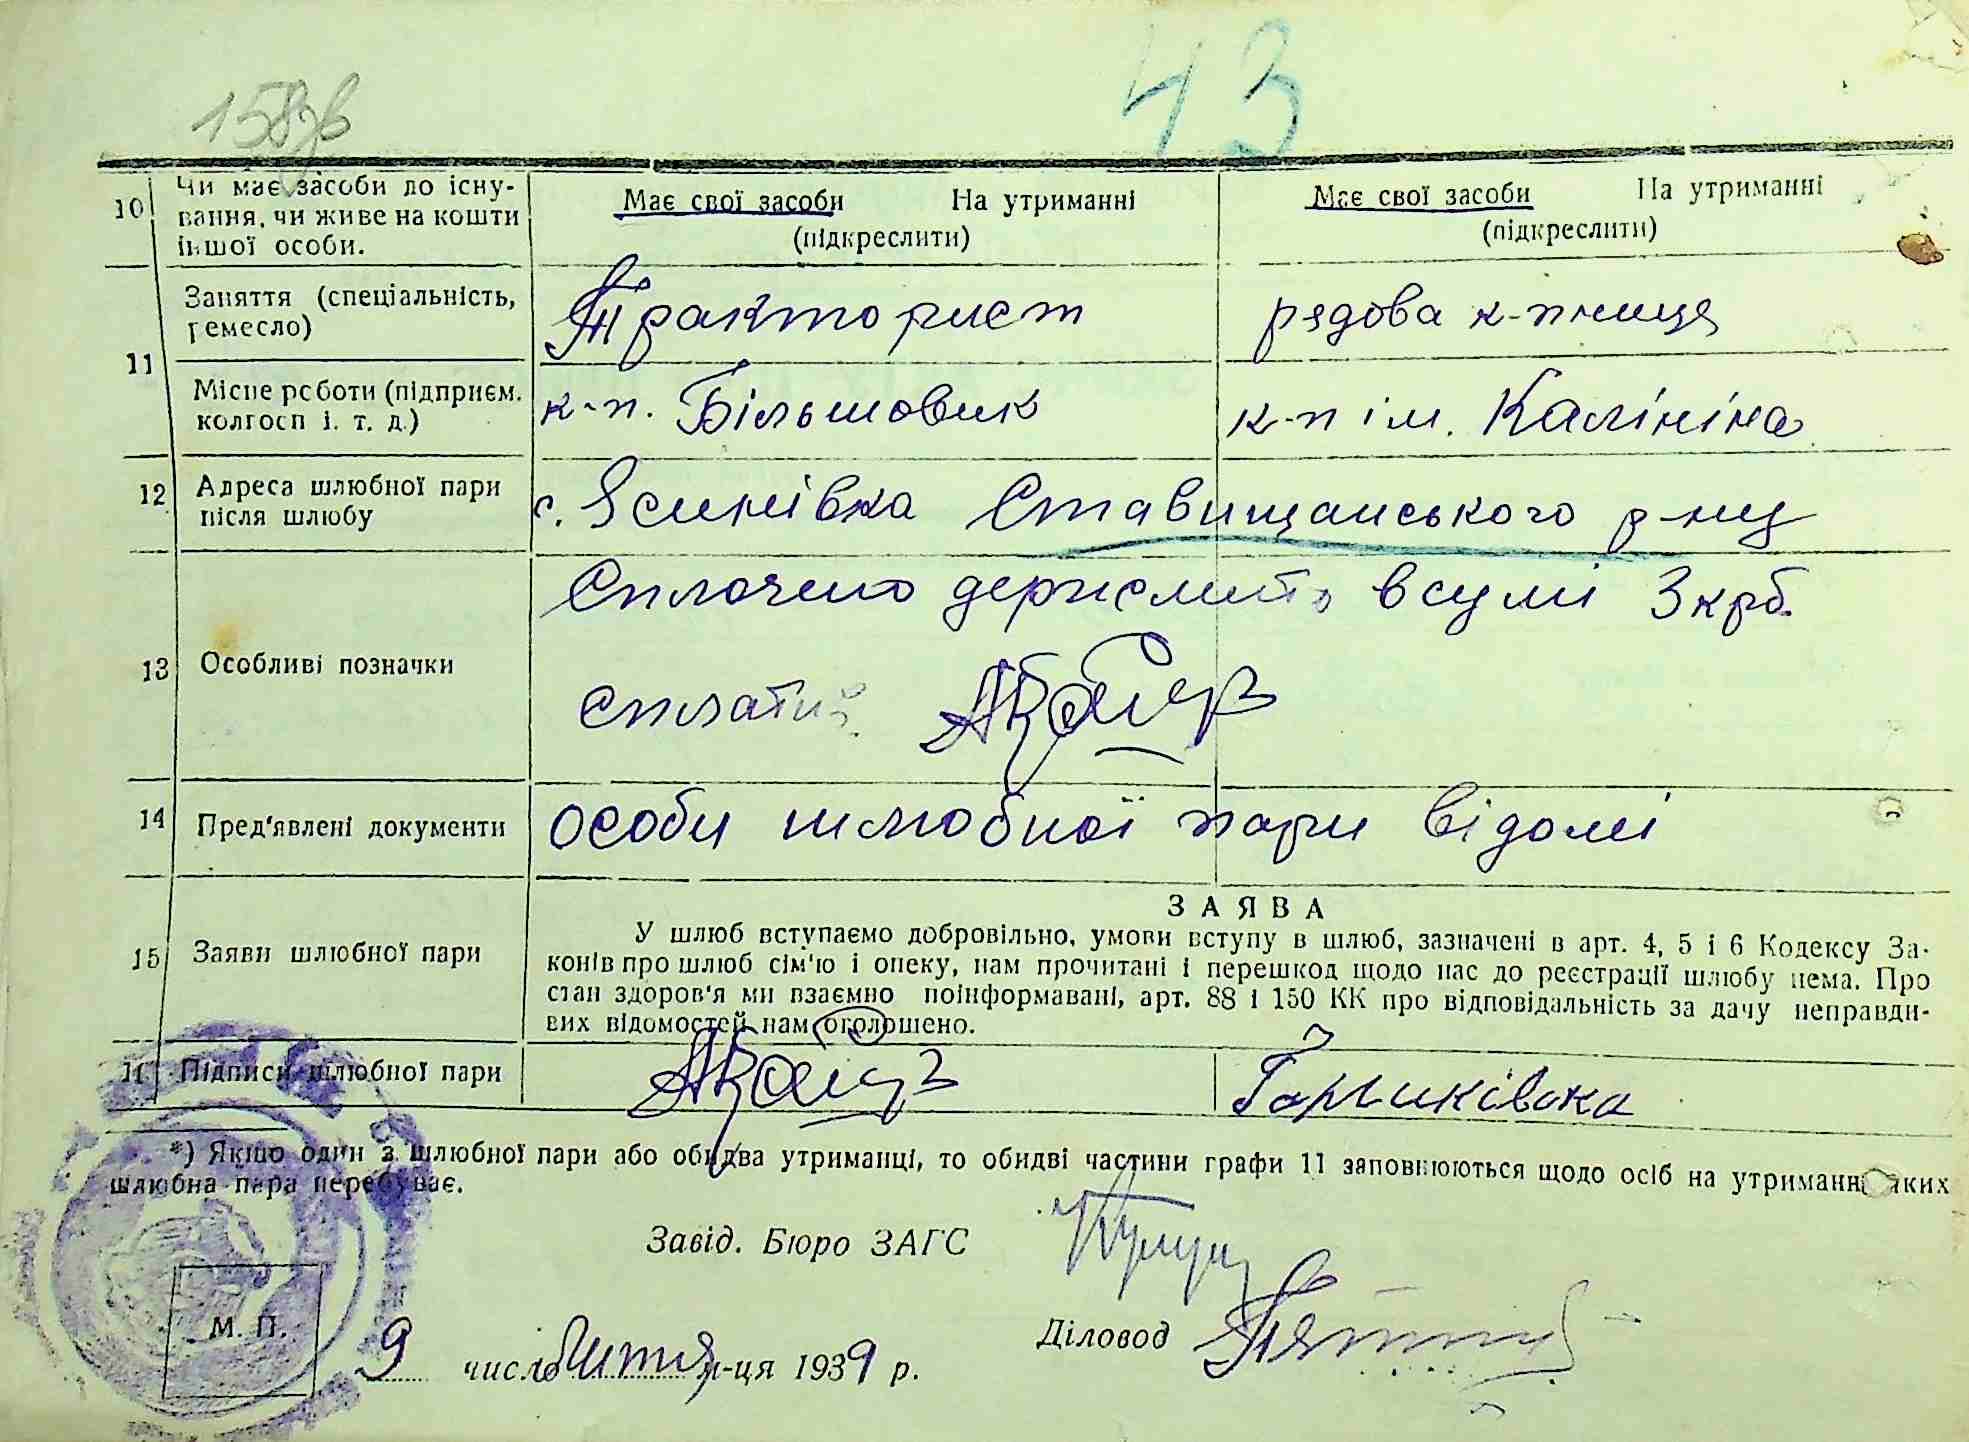 158зв
43
10 Чи має засоби до існу-
вання, чи живе на кошти
іншої особи.
Має свої засоби На утриманні
(підкреслити)
Має свої засоби На утриманні
(підкреслити)
11
Заняття (спеціальність,
ремесло)
Тракторист
рядова к-пниця
Місце роботи (підприєм.
колгосп і. т. д.)
к-п. Більшовик
к-п ім. Калініна
12 Адреса шлюбної пари
після шлюбу
с. Ясинівка Ставищанського р-ну
13 Особливі позначки
Сплочено держмито в сумі 3 крб.
сплатив
14 Пред'явлені документи
особи шлюбної пари відомі
15 Заяви шлюбної пари
ЗАЯВА
У шлюб вступаємо добровільно, умови вступу в шлюб, зазначені в арт. 4, 5 і 6 Кодексу За-
конів про шлюб сім'ю і опеку, нам прочитані і перешкод щодо нас до реєстрації шлюбу нема. Про
стан здоров'я ми взаємно поінформавані, арт. 88 і 150 КК про відповідальність за дачу неправди-
вих відомостей нам оголошено.
Підписи шлюбної пари
Горчиківска
*) Якшо один з шлюбної пари або обидва утриманці, то обидві частини графи 11 заповнюються щодо осіб на утриманні яких
шлюбна пара перебуває.
Завід. Бюро ЗАГС
Діловод
М. П.
9 число м-ця 1939 р.